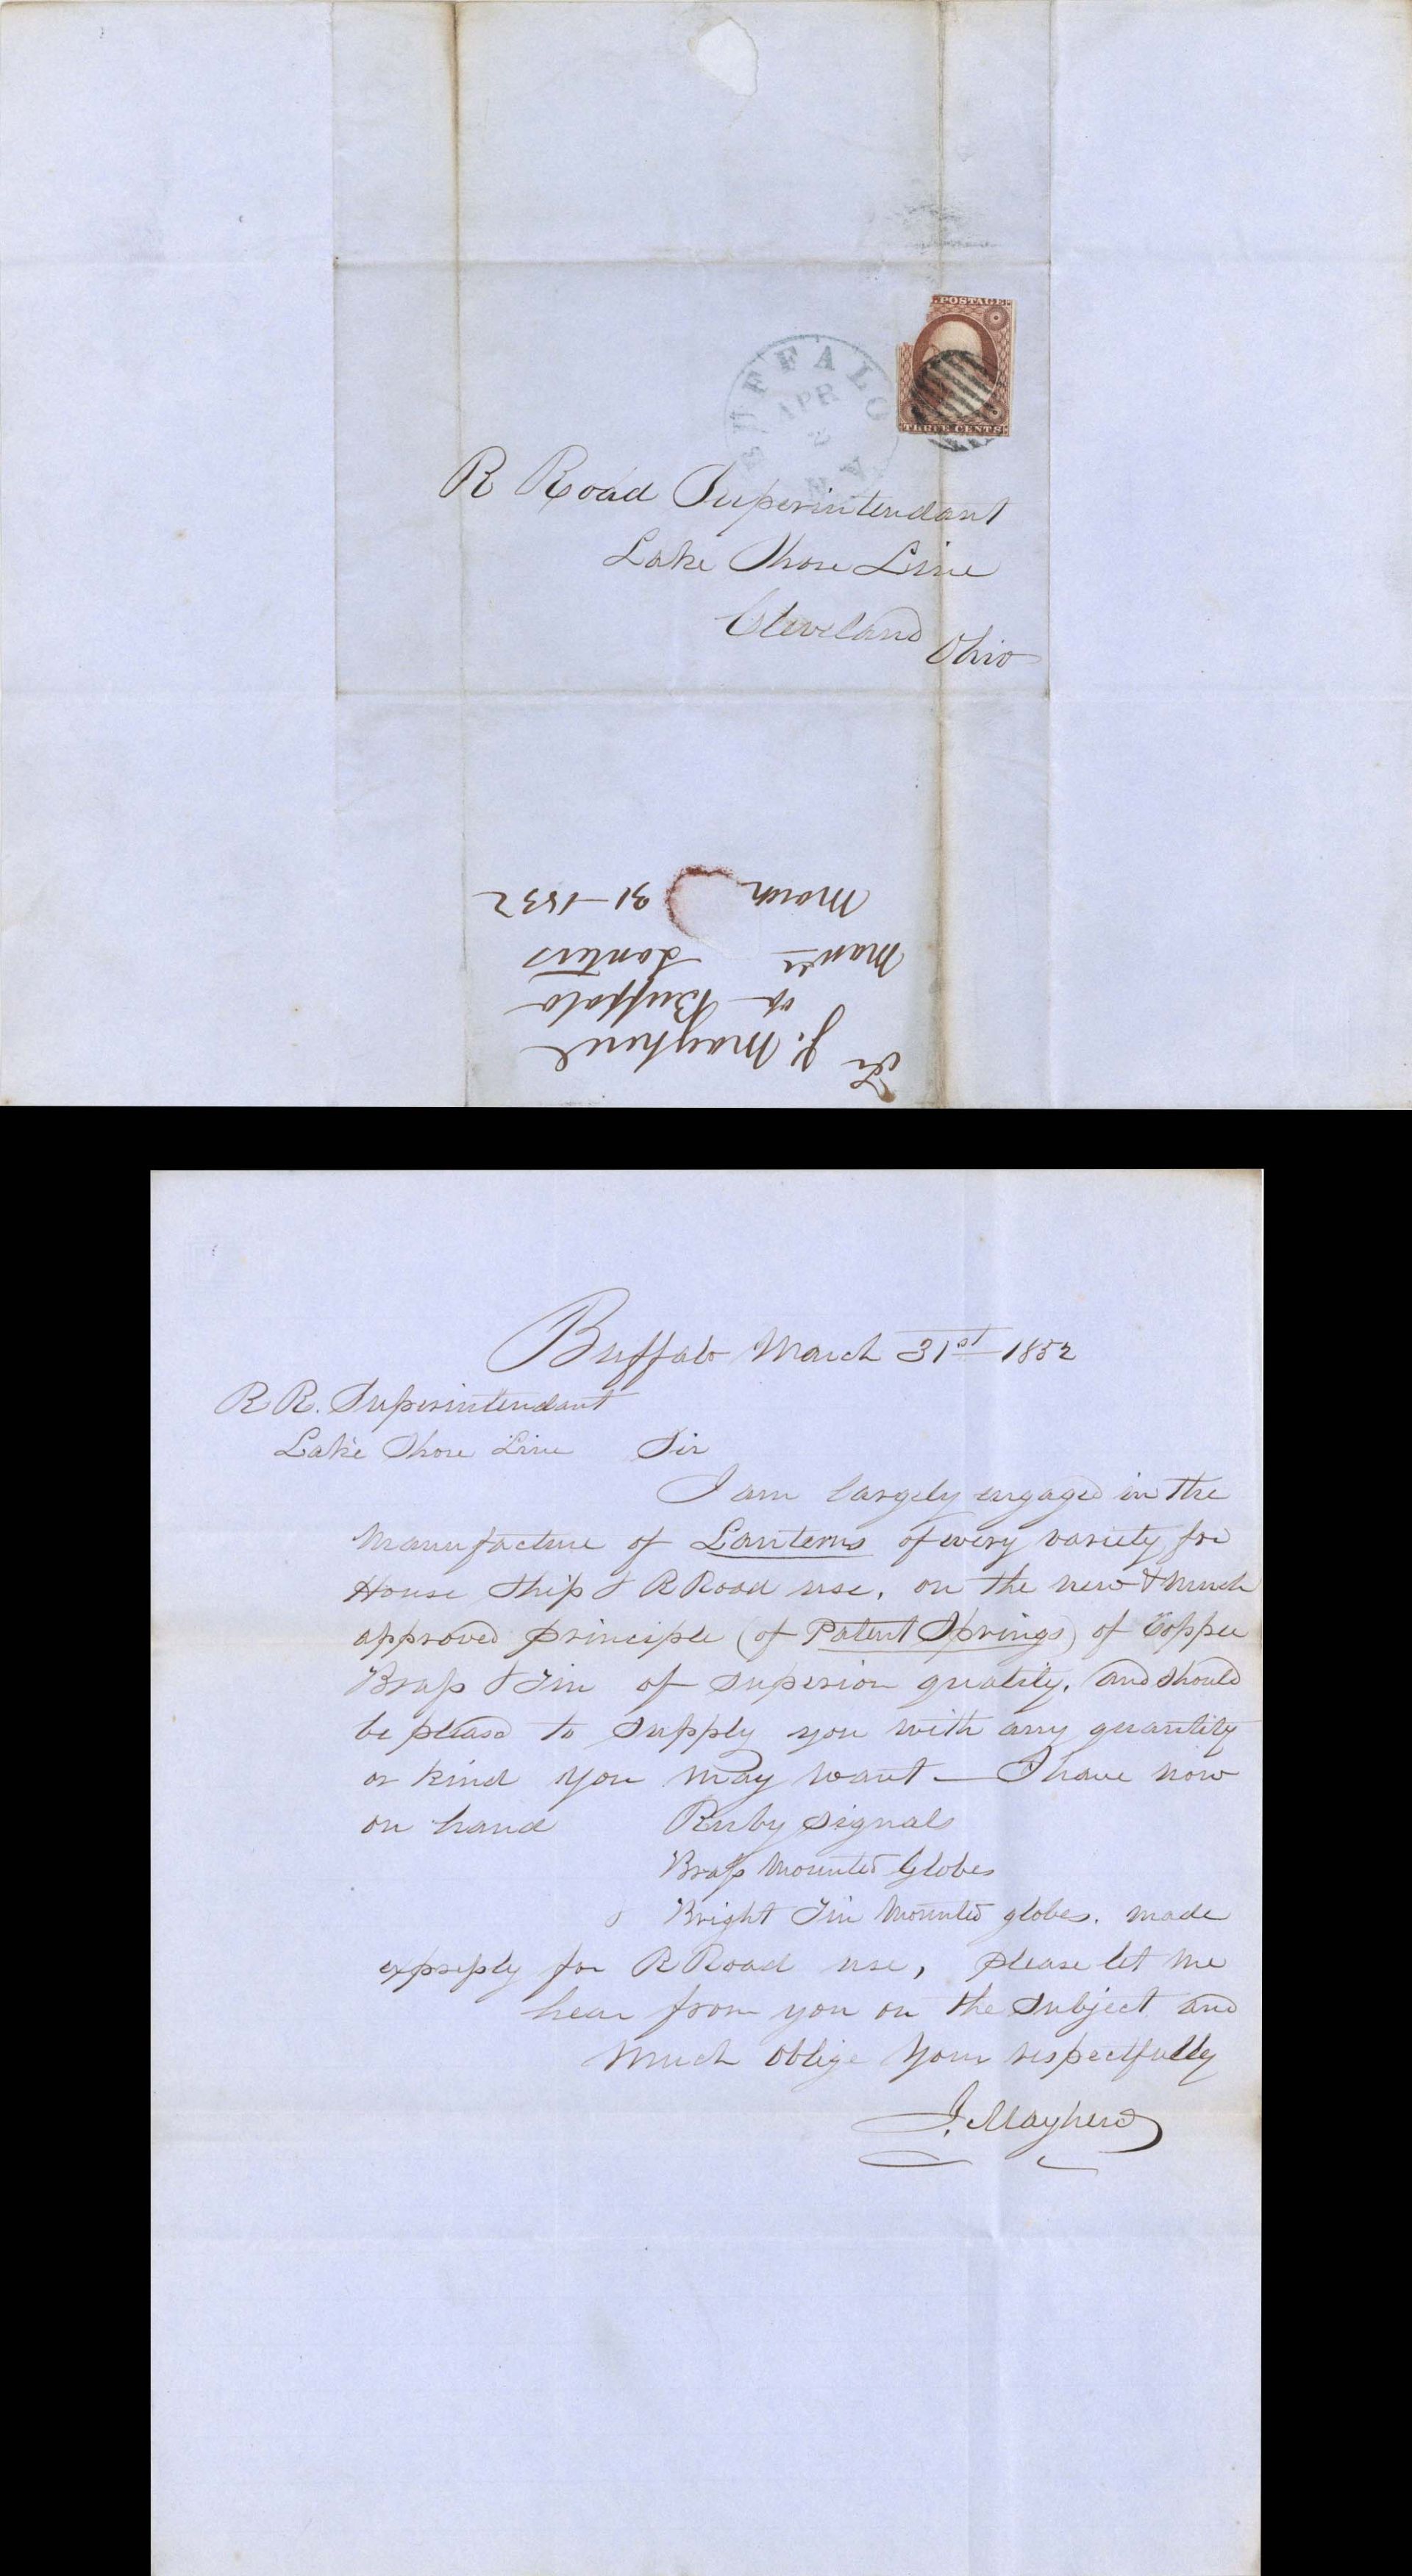 . POSTAGE.
THREE CENTS
BUFFALO
APR
2
N.Y.
R Road Superintendant
Lake Shore Line
Cleveland Ohio
J. Mayhew
of Buffalo
March 31-1852
Buffalo March 31st 1852
R R. Superintendant
Lake Shore Line Sir
I am largely engaged in the
Manufacture of Lanterns of every variety for
House Ship & R Road use, on the new & much
approved principle (of Patent Springs) of Copper
Brass & Tin of superior quality. and should
be pleasd to supply you with any quantity
or kind you may want — I have now
on hand Ruby Signals
Brass Mounted Globes
& Bright Tin Mounted globes. made
expressly for R Road use, please let me
hear from you on the subject and
Much oblige Your respectfully
J. Mayhew